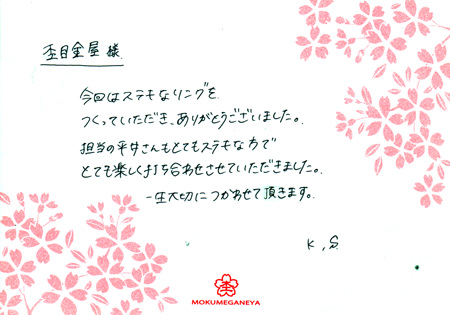 杢目金屋 様
今回はステキなリングを
つくっていただき、ありがとうございました。
担当の平井さんもとてもステキな方で
とても楽しく打ち合わせさせていただきました。
一生大切につかわせて頂きます。
K.S.
MOKUMEGANEYA